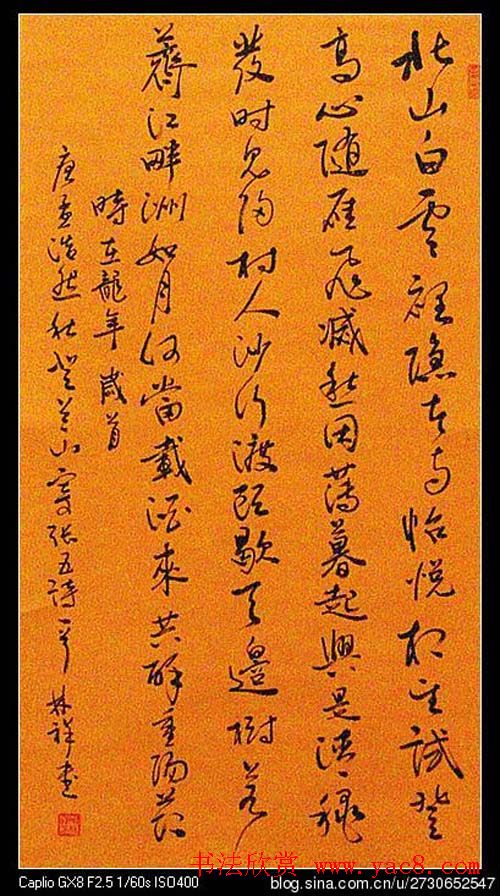 北山白雲裡隱者自怡悅相望試登
高心隨雁飛滅愁因薄暮起興是清秋
發时见归村人沙行渡头歇天邊樹若
薺江畔洲如月何當載酒來共醉重陽节
時在龍年歲首
唐孟浩然秋登兰山寄张五詩一首 林祥書
书法欣赏 www.yac8.com
Caplio GX8 F2.5 1/60s ISO400
blog.sina.com.cn/u/2730652547